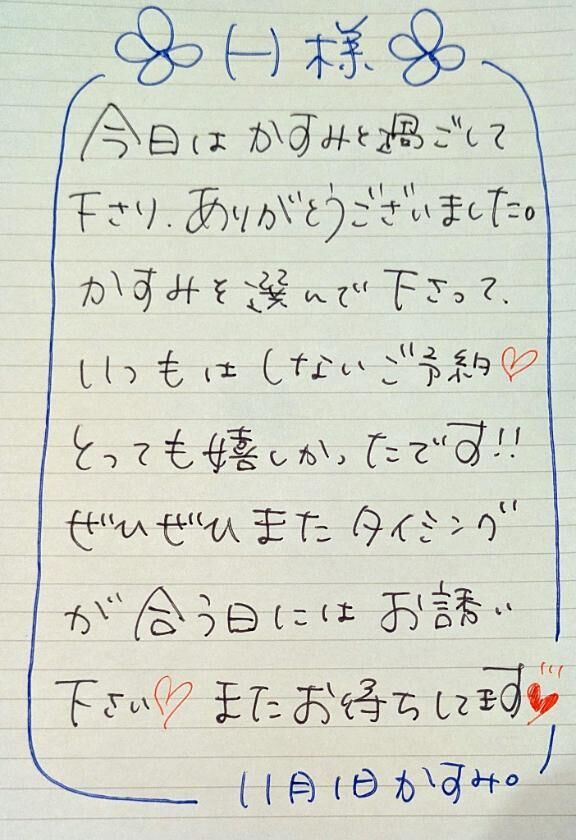 (一)様
今日はかすみと過ごして
下さり、ありがとうございました。
かすみを選んで下さって、
いつもはしないご予約♡
とっても嬉しかったです!!
ぜひぜひまたタイミング
が合う日にはお誘い
下さい♡またお待ちしてます♥
11月1日かすみ。